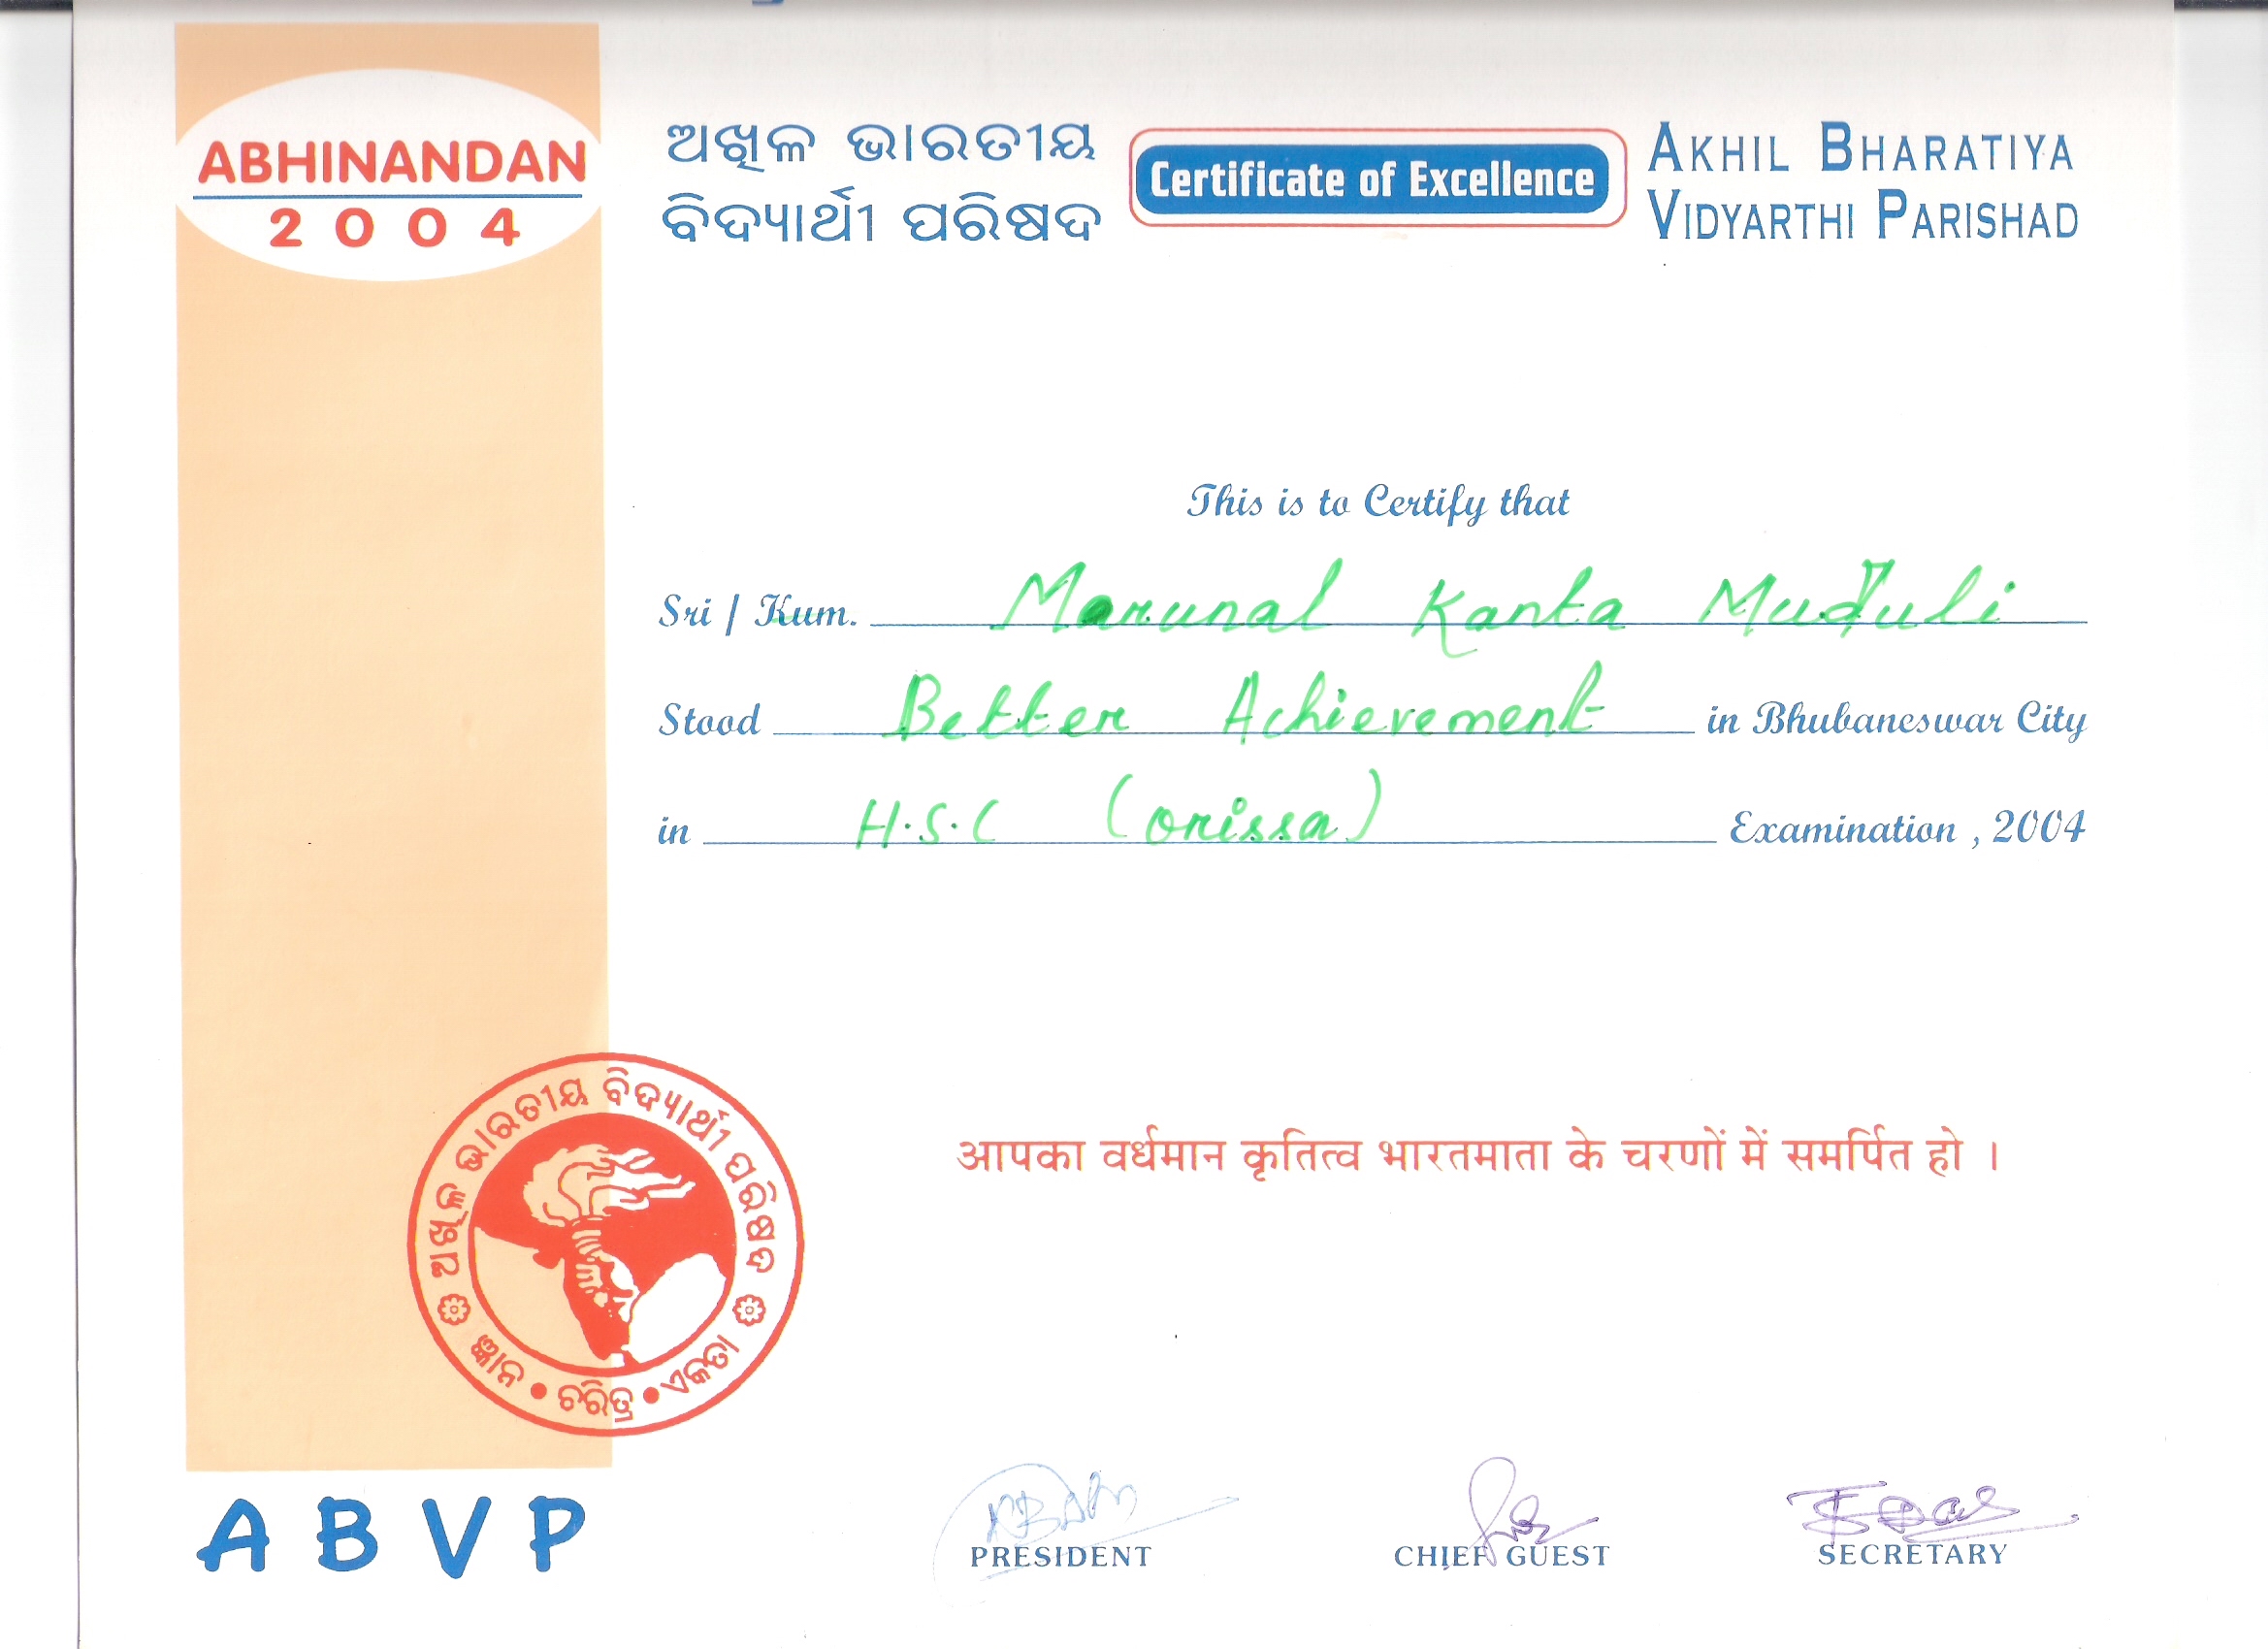 ABHINANDAN
2004
ଅଖିଳ ଭାରତୀୟ
ବିଦ୍ୟାର୍ଥୀ ପରିଷଦ
Certificate of Excellence
AKHIL BHARATIYA
VIDYARTHI PARISHAD
This is to Certify that
Sri / Kum. Marunal Kanta Muduli
Stood Better Achievement in Bhubaneswar City
in H.S.C (orissa) Examination , 2004
ଅଖିଳ ଭାରତୀୟ ବିଦ୍ୟାର୍ଥୀ ପରିଷଦ
ଜ୍ଞାନ • ଚରିତ୍ର • ଏକତା
आपका वर्धमान कृतित्व भारतमाता के चरणों में समर्पित हो ।
ABVP
PRESIDENT
CHIEF GUEST
SECRETARY